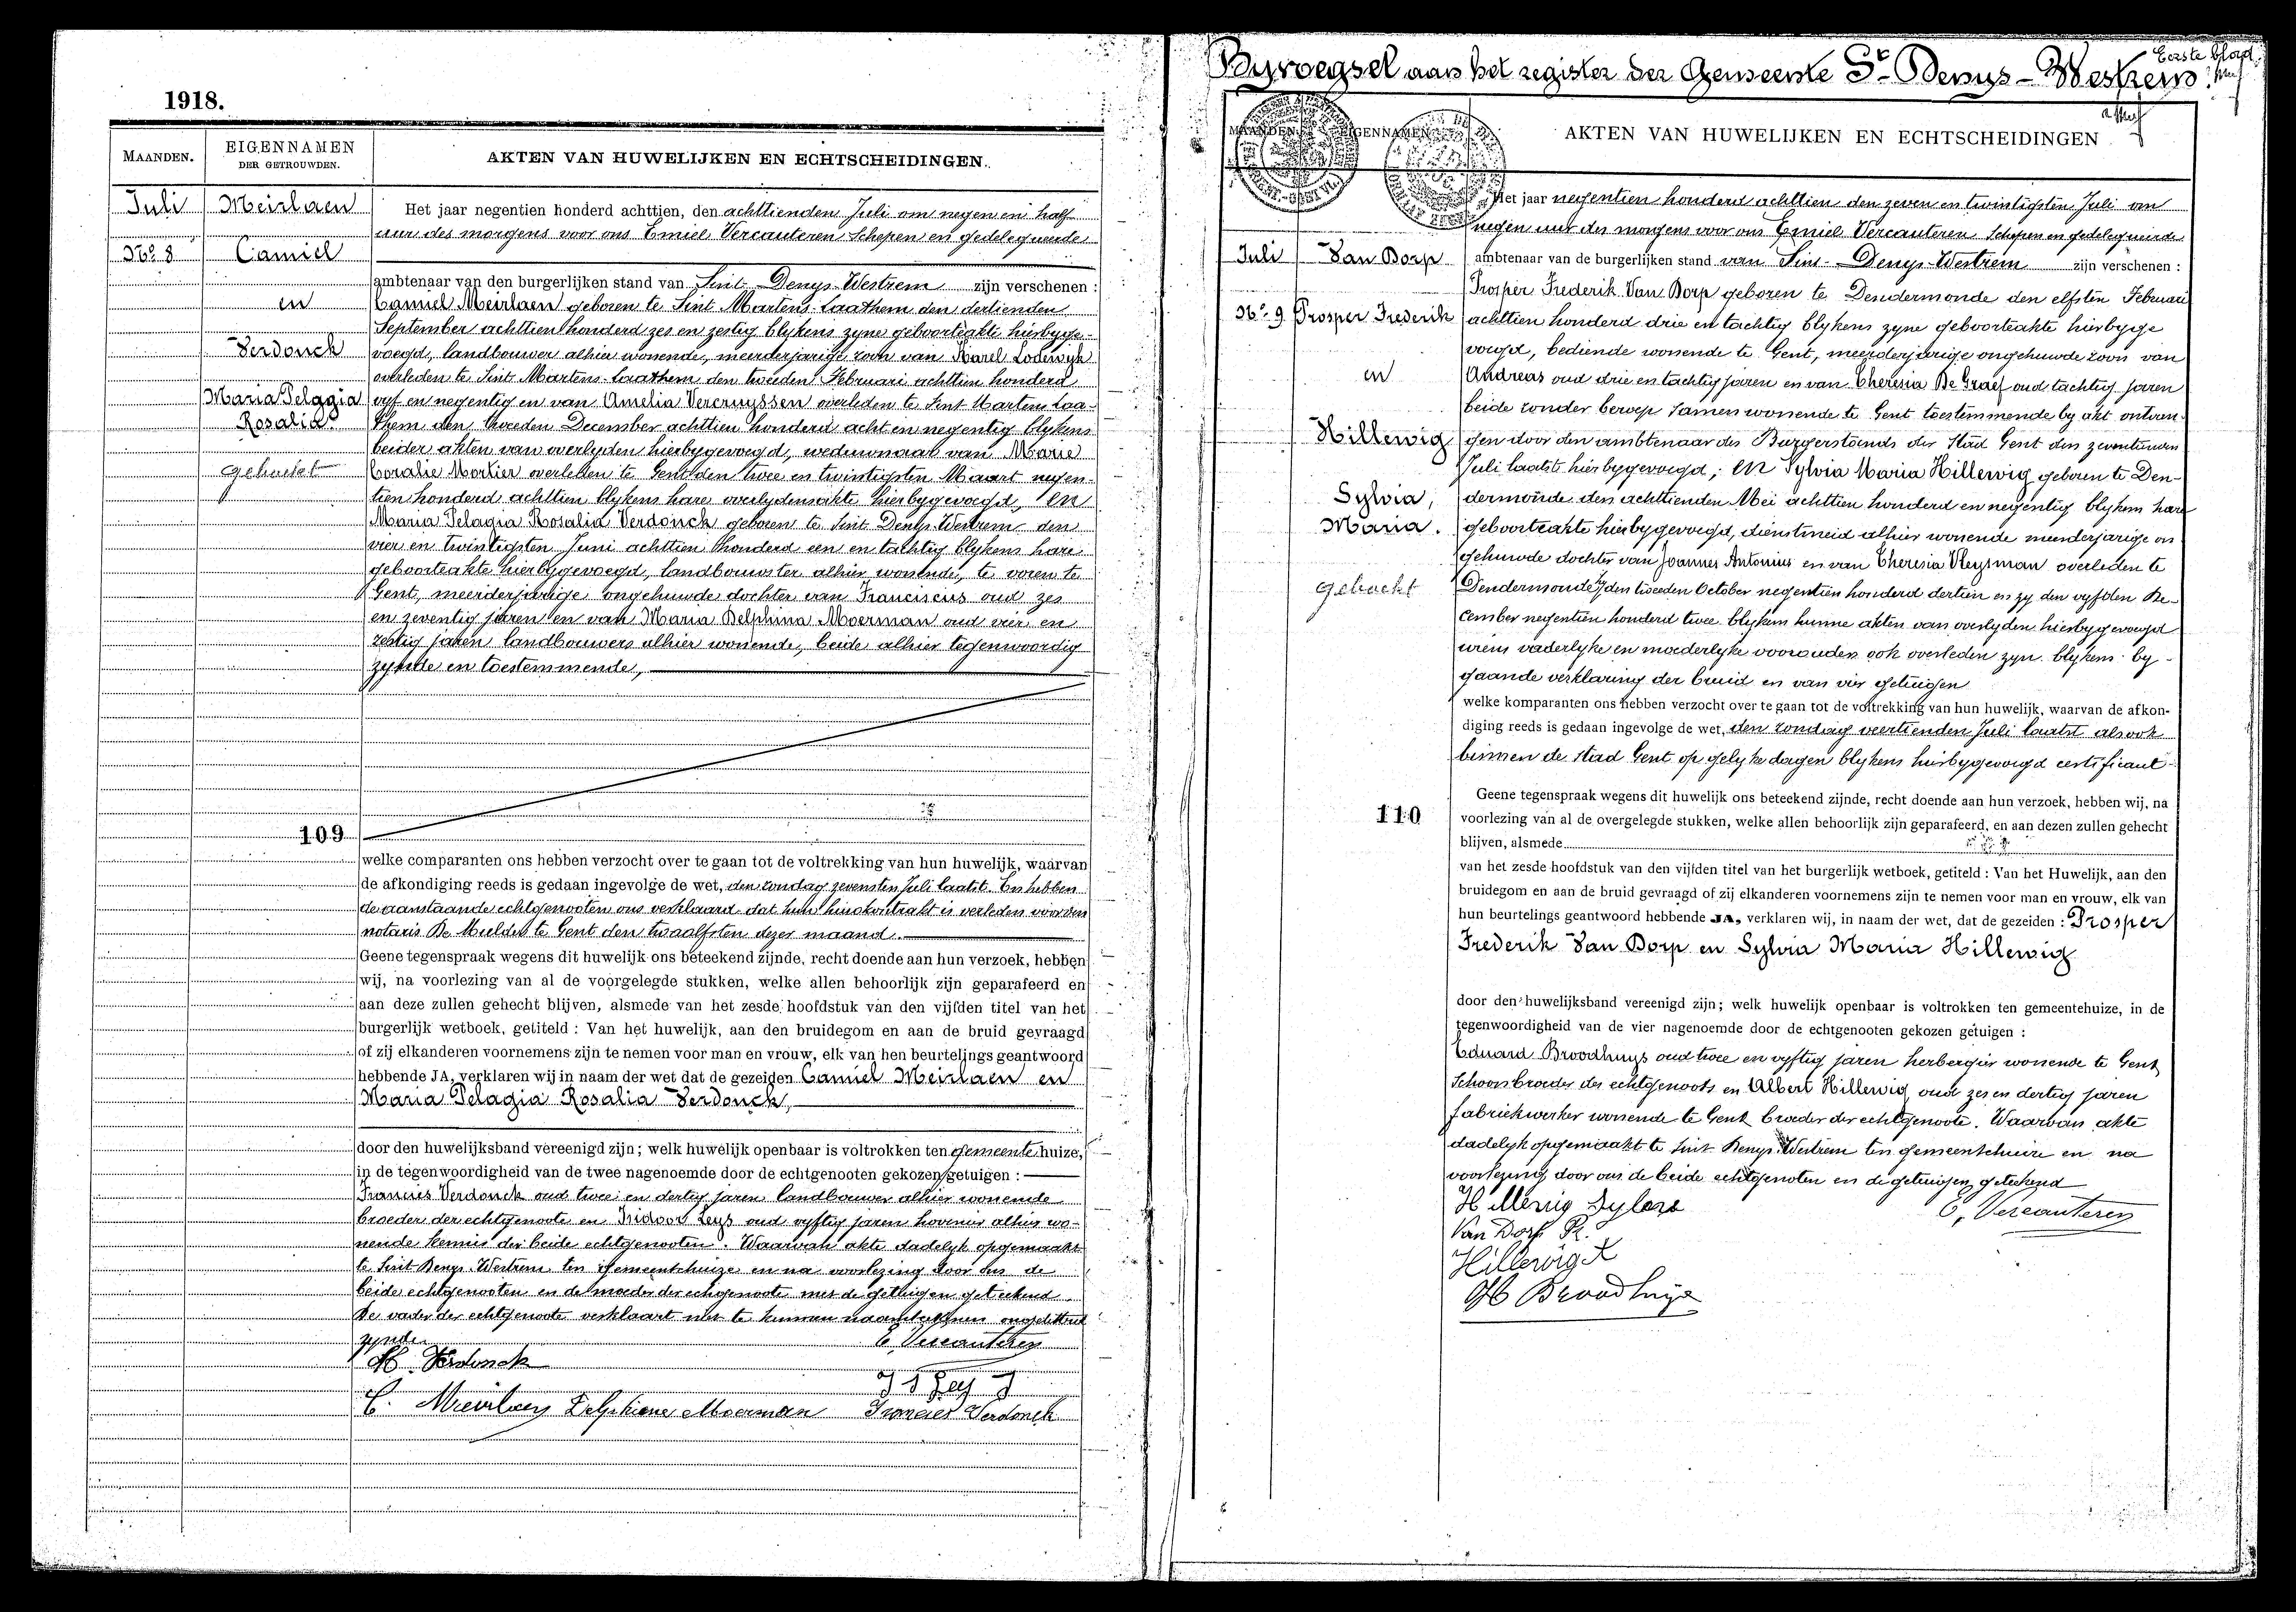 1918.
MAANDEN.
EIGENNAMEN
DER GETROUWDEN.
AKTEN VAN HUWELIJKEN EN ECHTSCHEIDINGEN.
Juli
No. 8
Meirlaen
Camiel
en
Verdonck
Maria Pelagia
Rosalia
gehecht
Het jaar negentien honderd achttien, den achttienden Juli om negen en half
uur des morgens voor ons Emiel Vercauteren Schepen en gedelegueerde
ambtenaar van den burgerlijken stand van Sint Denys-Westrem zijn verschenen :
Camiel Meirlaen geboren te Sint Martens-Laathem den dertienden
September achttien honderd zes en zestig blykens zyne geboorteakte hierbyge-
voegd, landbouwer alhier wonende, meerderjarige zoon van Karel Lodewyk
overleden te Sint Martens Laathem den tweeden Februari achttien honderd
vyf en negentig en van Amelia Vercruyssen overleden te Sint Martens Laa-
them den tweeden December achttien honderd acht en negentig blykens
beider akten van overlyden hierbygevoegd, weduwnaar van Marie
Coralie Mortier overleden te Gent den twee en twintigsten Maart negen-
tien honderd achttien blykens hare overlydensakte hierbygevoegd, en
Maria Pelagia Rosalia Verdonck geboren te Sint Denys-Westrem den
vier en twintigsten Juni achttien honderd een en tachtig blykens hare
geboorteakte hierbygevoegd, landbouwster alhier wonende, te voren te
Gent, meerderjarige ongehuwde dochter van Franciscus oud zes
en zeventig jaren en van Maria Delphina Moerman oud vier en
zestig jaren landbouwers alhier wonende, beide alhier tegenwoordig
zynde en toestemmende,
109
welke comparanten ons hebben verzocht over te gaan tot de voltrekking van hun huwelijk, waarvan
de afkondiging reeds is gedaan ingevolge de wet, den zondag zevensten Juli laatst. En hebben
de aanstaande echtgenooten ons verklaard dat hun huwkontrakt is verleden voor den
notaris De Mulder te Gent den twaalfsten dezer maand.
Geene tegenspraak wegens dit huwelijk ons beteekend zijnde, recht doende aan hun verzoek, hebben
wij, na voorlezing van al de voorgelegde stukken, welke allen behoorlijk zijn geparafeerd en
aan deze zullen gehecht blijven, alsmede van het zesde hoofdstuk van den vijfden titel van het
burgerlijk wetboek, getiteld : Van het huwelijk, aan den bruidegom en aan de bruid gevraagd
of zij elkanderen voornemens zijn te nemen voor man en vrouw, elk van hen beurtelings geantwoord
hebbende JA, verklaren wij in naam der wet dat de gezeiden Camiel Meirlaen en
Maria Pelagia Rosalia Verdonck,
door den huwelijksband vereenigd zijn; welk huwelijk openbaar is voltrokken ten gemeente huize,
in de tegenwoordigheid van de twee nagenoemde door de echtgenooten gekozen getuigen :
Francies Verdonck oud twee en dertig jaren landbouwer alhier wonende
broeder der echtgenoote en Isidoor Leys oud vyftig jaren hovenier alhier wo-
nende kennis der beide echtgenooten. Waarvan akte dadelyk opgemaakt
te Sint Denys-Westrem ten gemeentehuize en na voorlezing door ons de
beide echtgenooten en de moeder der echtgenoote met de getuigen geteekend
De vader der echtgenoote verklaart niet te kunnen naamteekenen ongeletterd
zynde.
E. Vercauteren
M. Verdonck
C. Meirlaen Delphiena Moerman Francies Verdonck
Byvoegsel aan het register der Gemeente St Denys-Westrem.
Eerste blad
MAANDEN
EIGENNAMEN
AKTEN VAN HUWELIJKEN EN ECHTSCHEIDINGEN
Juli
No. 9
Van Dorp
Prosper Frederik
en
Hillewig
Sylvia,
Maria.
gehecht
Het jaar negentien honderd achttien den zeven en twintigsten Juli om
negen uur des morgens voor ons Emiel Vercauteren Schepen en gedelegueerde
ambtenaar van de burgerlijken stand van Sint-Denys-Westrem zijn verschenen :
Prosper Frederik Van Dorp geboren te Dendermonde den elfsten Februari
achttien honderd drie en tachtig blykens zyne geboorteakte hierbyge
voegd, bediende wonende te Gent, meerderjarige ongehuwde zoon van
Andreas oud drie en tachtig jaren en van Theresia De Graef oud tachtig jaren
beide zonder beroep samen wonende te Gent toestemmende by akt ontvan-
gen door den ambtenaar des Burgerstands der Stad Gent den zeventienen
Juli laatst hierbygevoegd; en Sylvia Maria Hillewig geboren te Den-
dermonde den achttienden Mei achttien honderd en negentig blykens hare
geboorteakte hierbygevoegd, dienstmeid alhier wonende meerderjarige on
gehuwde dochter van Joannes Antonius en van Theresia Vleysman overleden te
Dendermonde hy den tweeden October negentien honderd dertien en zy den vyfden De-
cember negentien honderd twee blykens hunne akten van overlyden hierbygevoegd
wiens vaderlyke en moederlyke voorouders ook overleden zyn blykens by-
gaande verklaring der bruid en van vier getuigen
welke komparanten ons hebben verzocht over te gaan tot de voltrekking van hun huwelijk, waarvan de afkon-
diging reeds is gedaan ingevolge de wet, den zondag veertienden Juli laatst alsook
binnen de stad Gent op gelyke dagen blykens hierbygevoegd certificaat
110
Geene tegenspraak wegens dit huwelijk ons beteekend zijnde, recht doende aan hun verzoek, hebben wij, na
voorlezing van al de overgelegde stukken, welke allen behoorlijk zijn geparafeerd, en aan dezen zullen gehecht
blijven, alsmede
van het zesde hoofdstuk van den vijfden titel van het burgerlijk wetboek, getiteld : Van het Huwelijk, aan den
bruidegom en aan de bruid gevraagd of zij elkanderen voornemens zijn te nemen voor man en vrouw, elk van
hun beurtelings geantwoord hebbende JA, verklaren wij, in naam der wet, dat de gezeiden : Prosper
Frederik Van Dorp en Sylvia Maria Hillewig
door den huwelijksband vereenigd zijn; welk huwelijk openbaar is voltrokken ten gemeentehuize, in de
tegenwoordigheid van de vier nagenoemde door de echtgenooten gekozen getuigen :
Eduard Broodhuys oud twee en vyftig jaren herbergier wonende te Gent
Schoonbroeder des echtgenoots en Albert Hillewig oud zes en dertig jaren
fabriekwerker wonende te Gent broeder der echtgenoote. Waarvan akte
dadelyk opgemaakt te Sint Denys-Westrem ten gemeentehuize en na
voorlezing door ons de beide echtgenoten en de getuigen geteekend
E. Vercauteren
Hillewig
Van Dorp Pr.
Hillewig A
Broodhuys